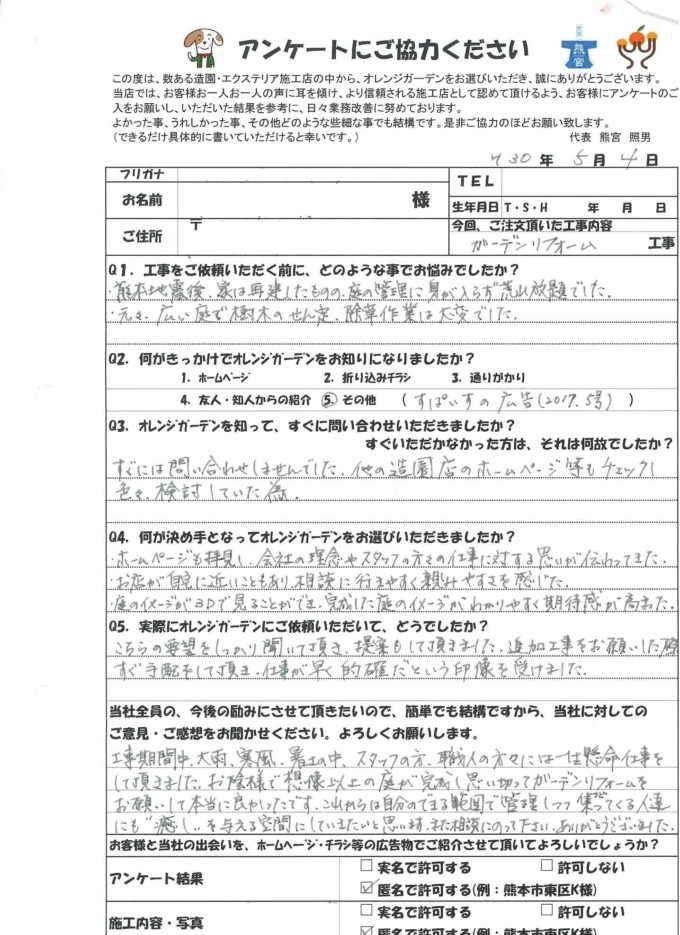 アンケートにご協力ください
熊宮
この度は、数ある造園・エクステリア施工店の中から、オレンジガーデンをお選びいただき、誠にありがとうございます。
当店では、お客様お一人お一人の声に耳を傾け、より信頼される施工店として認めて頂けるよう、お客様にアンケートのご
入をお願いし、いただいた結果を参考に、日々業務改善に努めております。
よかった事、うれしかった事、その他どのような些細な事でも結構です。是非ご協力のほどお願い致します。
（できるだけ具体的に書いていただけると幸いです。） 代表 熊宮 照男
30 年 5 月 4 日
フリガナ
TEL
お名前 様
生年月日 T・S・H 年 月 日
ご住所 〒
今回、ご注文頂いた工事内容
ガーデンリフォーム 工事
Q1. 工事をご依頼いただく前に、どのような事でお悩みでしたか？
・熊本地震後、家は再建したものの、庭の管理に身が入らず荒れ放題でした。
・元々、広い庭で樹木のせん定、除草作業は大変でした。
Q2. 何がきっかけでオレンジガーデンをお知りになりましたか？
1. ホームページ 2. 折り込みチラシ 3. 通りがかり
4. 友人・知人からの紹介 ⑤. その他 （ すぱいすの広告(2017.5号) ）
Q3. オレンジガーデンを知って、すぐに問い合わせいただきましたか？
すぐいただかなかった方は、それは何故でしたか？
すぐには問い合わせしませんでした。他の造園店のホームページ等もチェックし
色々、検討していた為。
Q4. 何が決め手となってオレンジガーデンをお選びいただきましたか？
・ホームページも拝見し、会社の理念やスタッフの方々の仕事に対する思いが伝わってきた。
・お店が自宅に近いこともあり、相談に行きやすく親しみやすさを感じた。
・庭のイメージが3Dで見ることができ、完成した庭のイメージがわかりやすく期待感が高まった。
Q5. 実際にオレンジガーデンにご依頼いただいて、どうでしたか？
こちらの要望をしっかり聞いて頂き、提案もして頂きました。追加工事をお願いした際
すぐ手配をして頂き、仕事が早く的確だという印像を受けました。
当社全員の、今後の励みにさせて頂きたいので、簡単でも結構ですから、当社に対しての
ご意見・ご感想をお聞かせください。よろしくお願いします。
工事期間中、大雨、寒風、暑さの中、スタッフの方、職人の方々には一生懸命仕事を
して頂きました。お陰様で想像以上の庭が完成し思い切ってガーデンリフォームを
お願いして本当に良かったです。これからは自分のできる範囲で管理しつつ集ってくる人達
にも“癒し”を与える空間にしていきたいと思います。また相談にのって下さい。ありがとうございました。
お客様と当社の出会いを、ホームページ・チラシ等の広告物でご紹介させて頂いてよろしいでしょうか？
アンケート結果
□ 実名で許可する □ 許可しない
☑ 匿名で許可する(例：熊本市東区K様)
施工内容・写真
□ 実名で許可する □ 許可しない
☑ 匿名で許可する(例：熊本市東区K様)